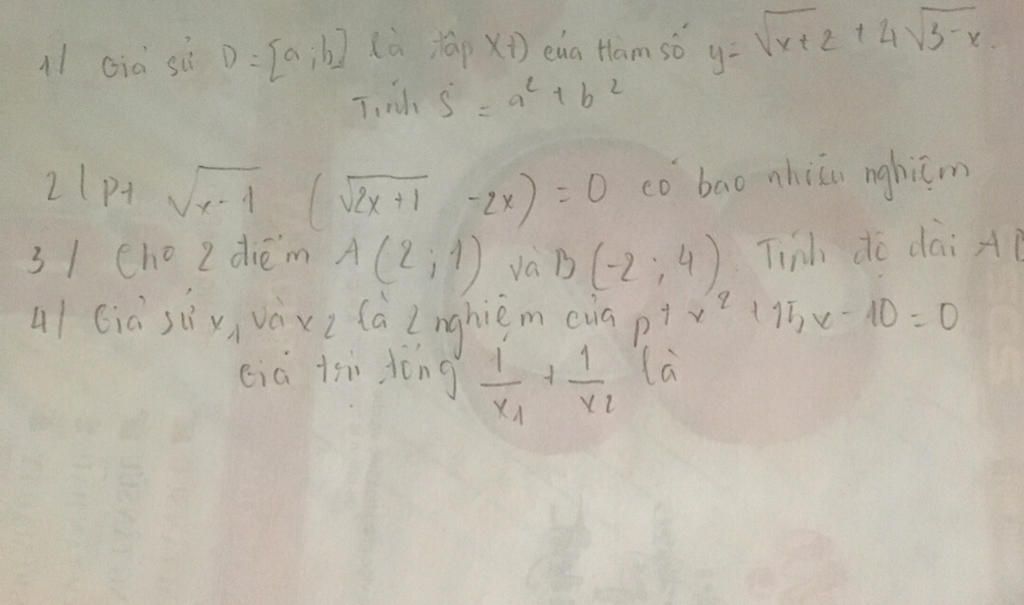 1/ Giả sử D = [a;b] là tập XĐ của Hàm số y = √x+2 + 4√3-x.
Tính S = a² + b²
2/ pt √x-1 (√2x+1 -2x) = 0 có bao nhiêu nghiệm
3/ Cho 2 điểm A(2;1) và B(-2;4). Tính độ dài AB
4/ Giả sử x₁ và x₂ là 2 nghiệm của pt x² + 15x - 10 = 0
Giá trị tổng 1/x₁ + 1/x₂ là